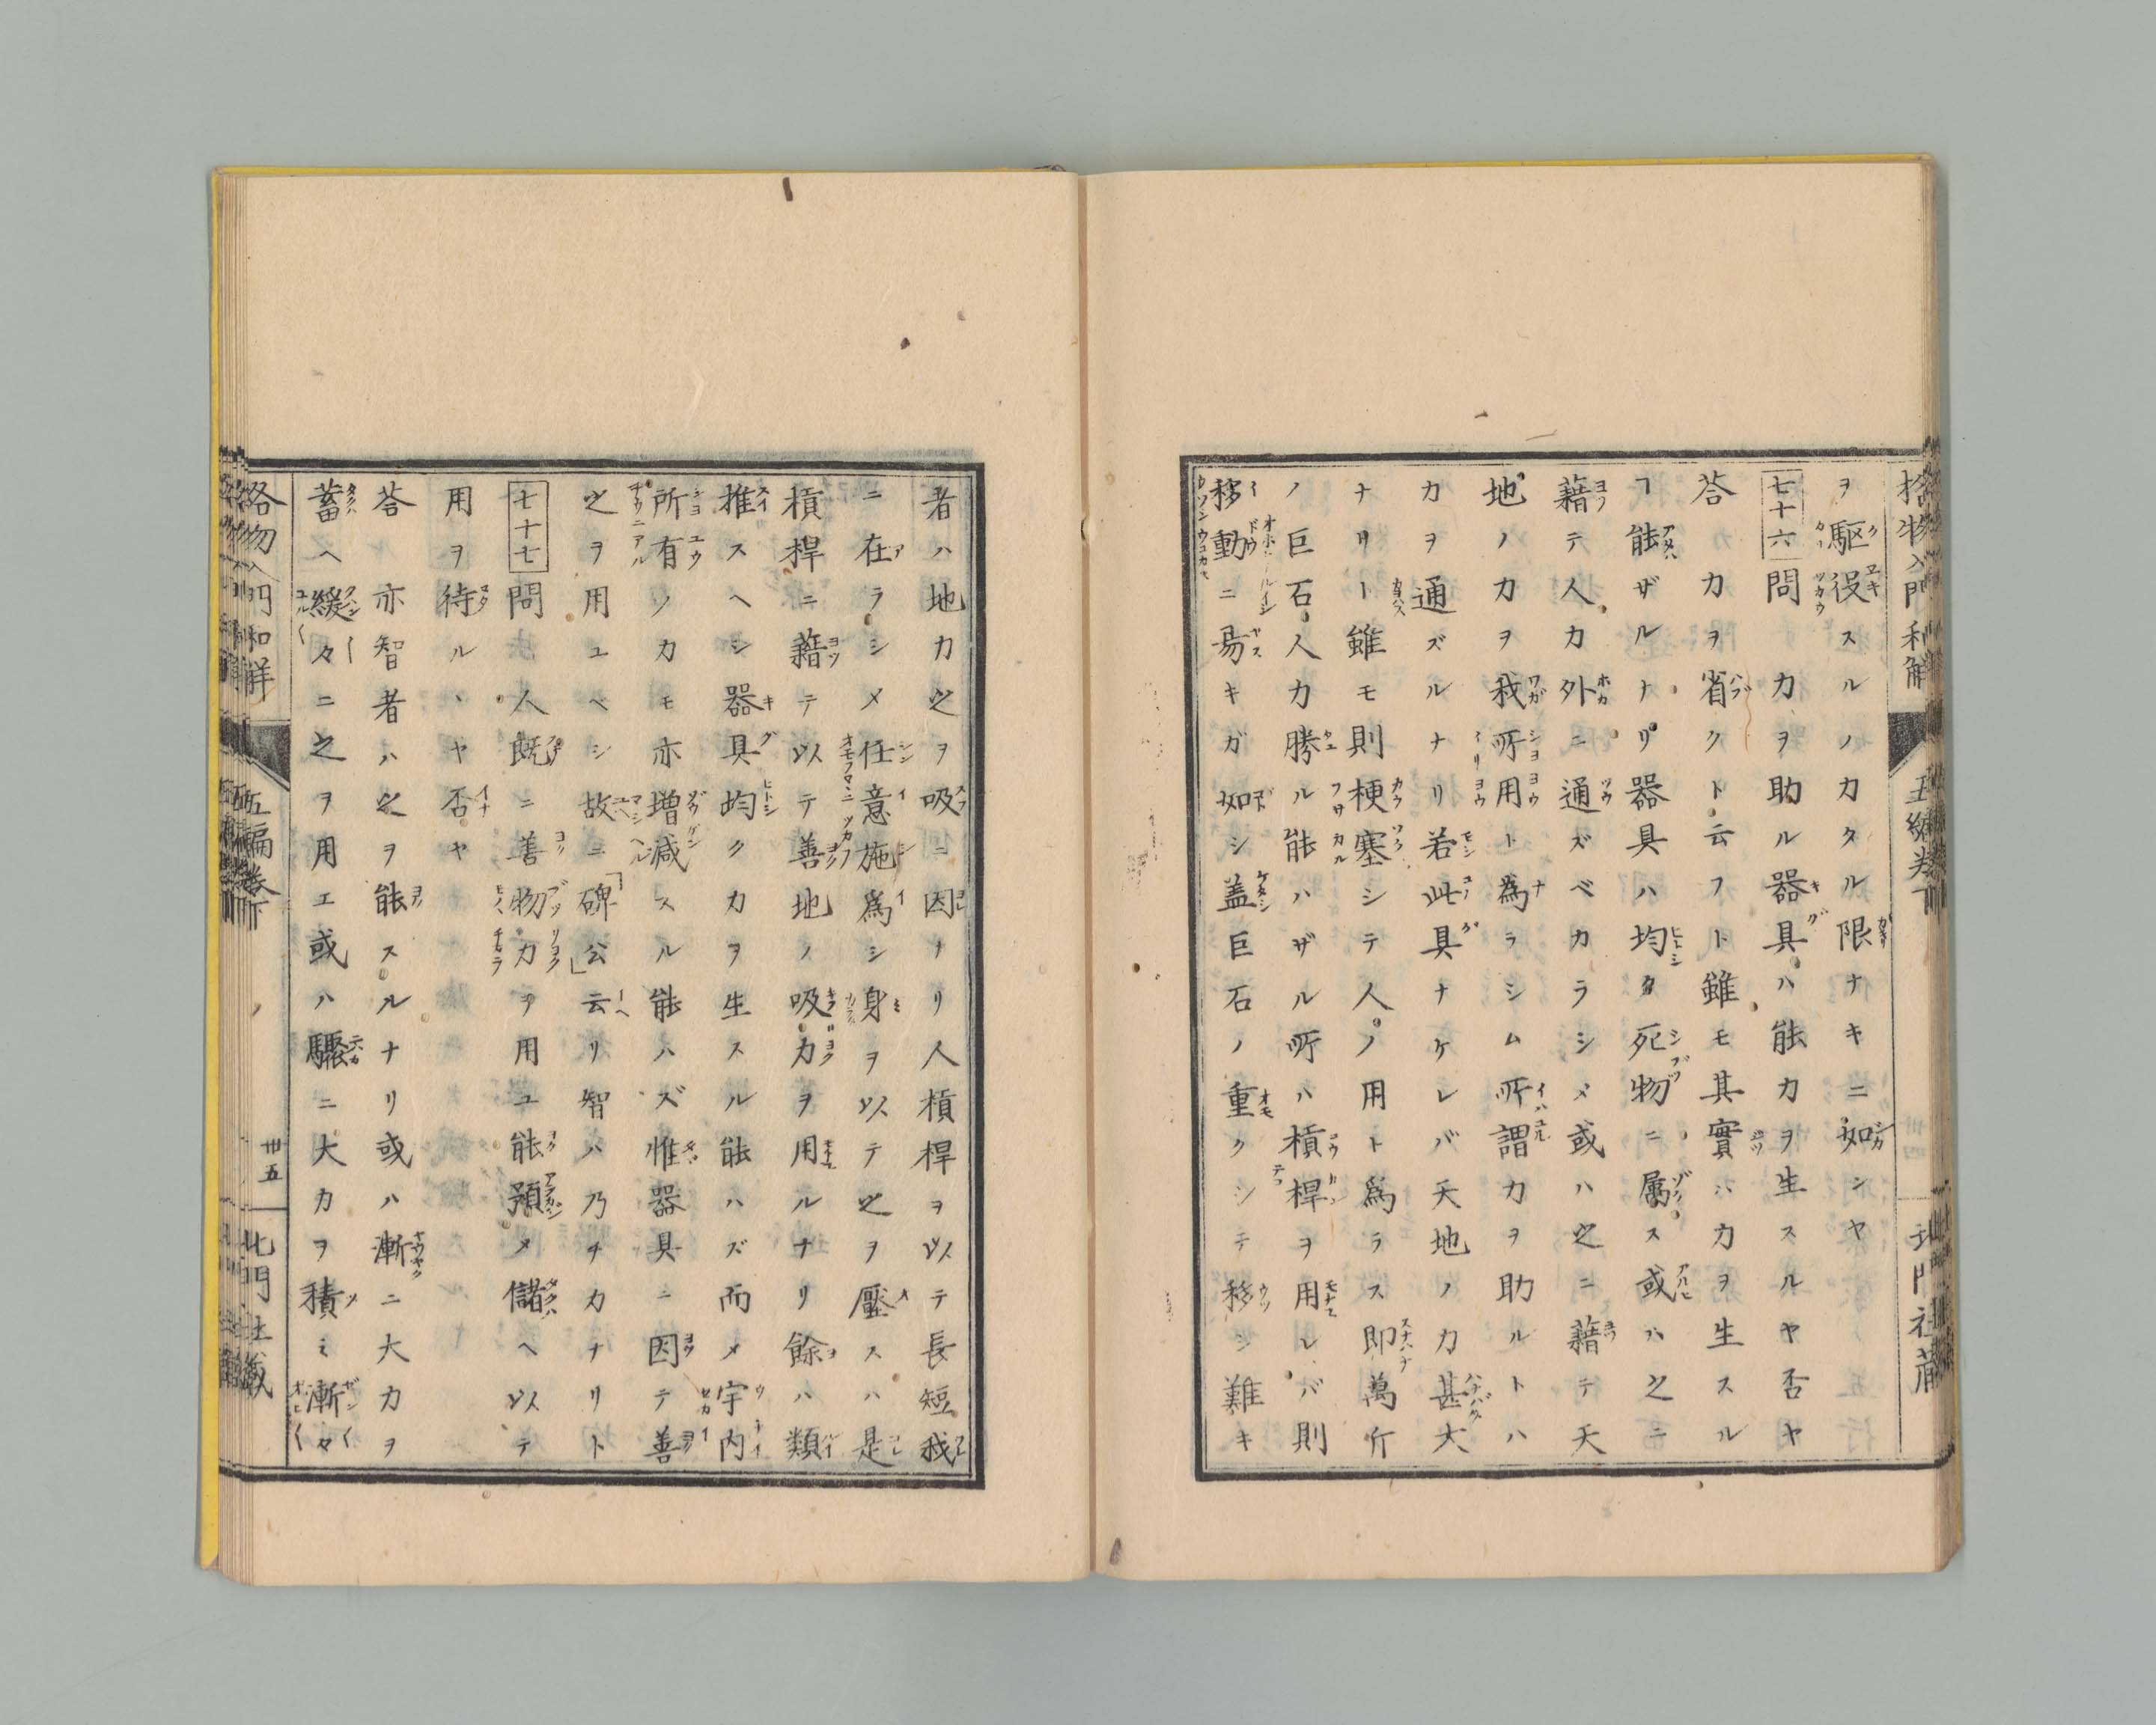 格物入門和解 五編卷下 卅四 北門社蔵
ヲ駆役スルノ力タル限ナキニ如ンヤ
七十六 問 力ヲ助ル器具ハ能力ヲ生スルヤ否ヤ
荅 力ヲ省クト云フト雖モ其實ハ力ヲ生スル
ヿ能ハザルナリ器具ハ均タ死物ニ属ス或ハ之ニ
藉テ人力外ニ通ズベカラシメ或ハ之ニ藉テ天
地ノ力ヲ我所用ト為ラシム所謂力ヲ助ルトハ
力ヲ通ズルナリ若此具ナケレバ天地ノ力甚大
ナリト雖モ則梗塞シテ人ノ用ト為ラス即萬斤
ノ巨石人力勝ル能ハザル所ハ槓桿ヲ用レバ則
移動ニ易キガ如シ盖巨石ノ重クシテ移シ難キ
者ハ地力之ヲ吸ニ因ナリ人槓桿ヲ以テ長短我
ニ在ラシメ任意施為シ身ヲ以テ之ヲ壓スハ是
槓桿ニ藉テ以テ善地ノ吸力ヲ用ルナリ餘ハ類
推スヘシ器具均ク力ヲ生スル能ハズ而メ宇内
所有ノ力モ亦増減スル能ハズ惟器具ニ因テ善
之ヲ用ユベシ故ニ「碑公」云リ智ハ乃チ力ナリト
七十七 問 人既ニ善物力ヲ用ユ能預メ儲ヘ以テ
用ヲ待ルヽヤ否ヤ
荅 亦智者ハ之ヲ能スルナリ或ハ漸ニ大力ヲ
蓄ヘ緩々ニ之ヲ用エ或ハ驟ニ大力ヲ積ミ漸々
格物入門和解 五編卷下 卅五 北門社蔵